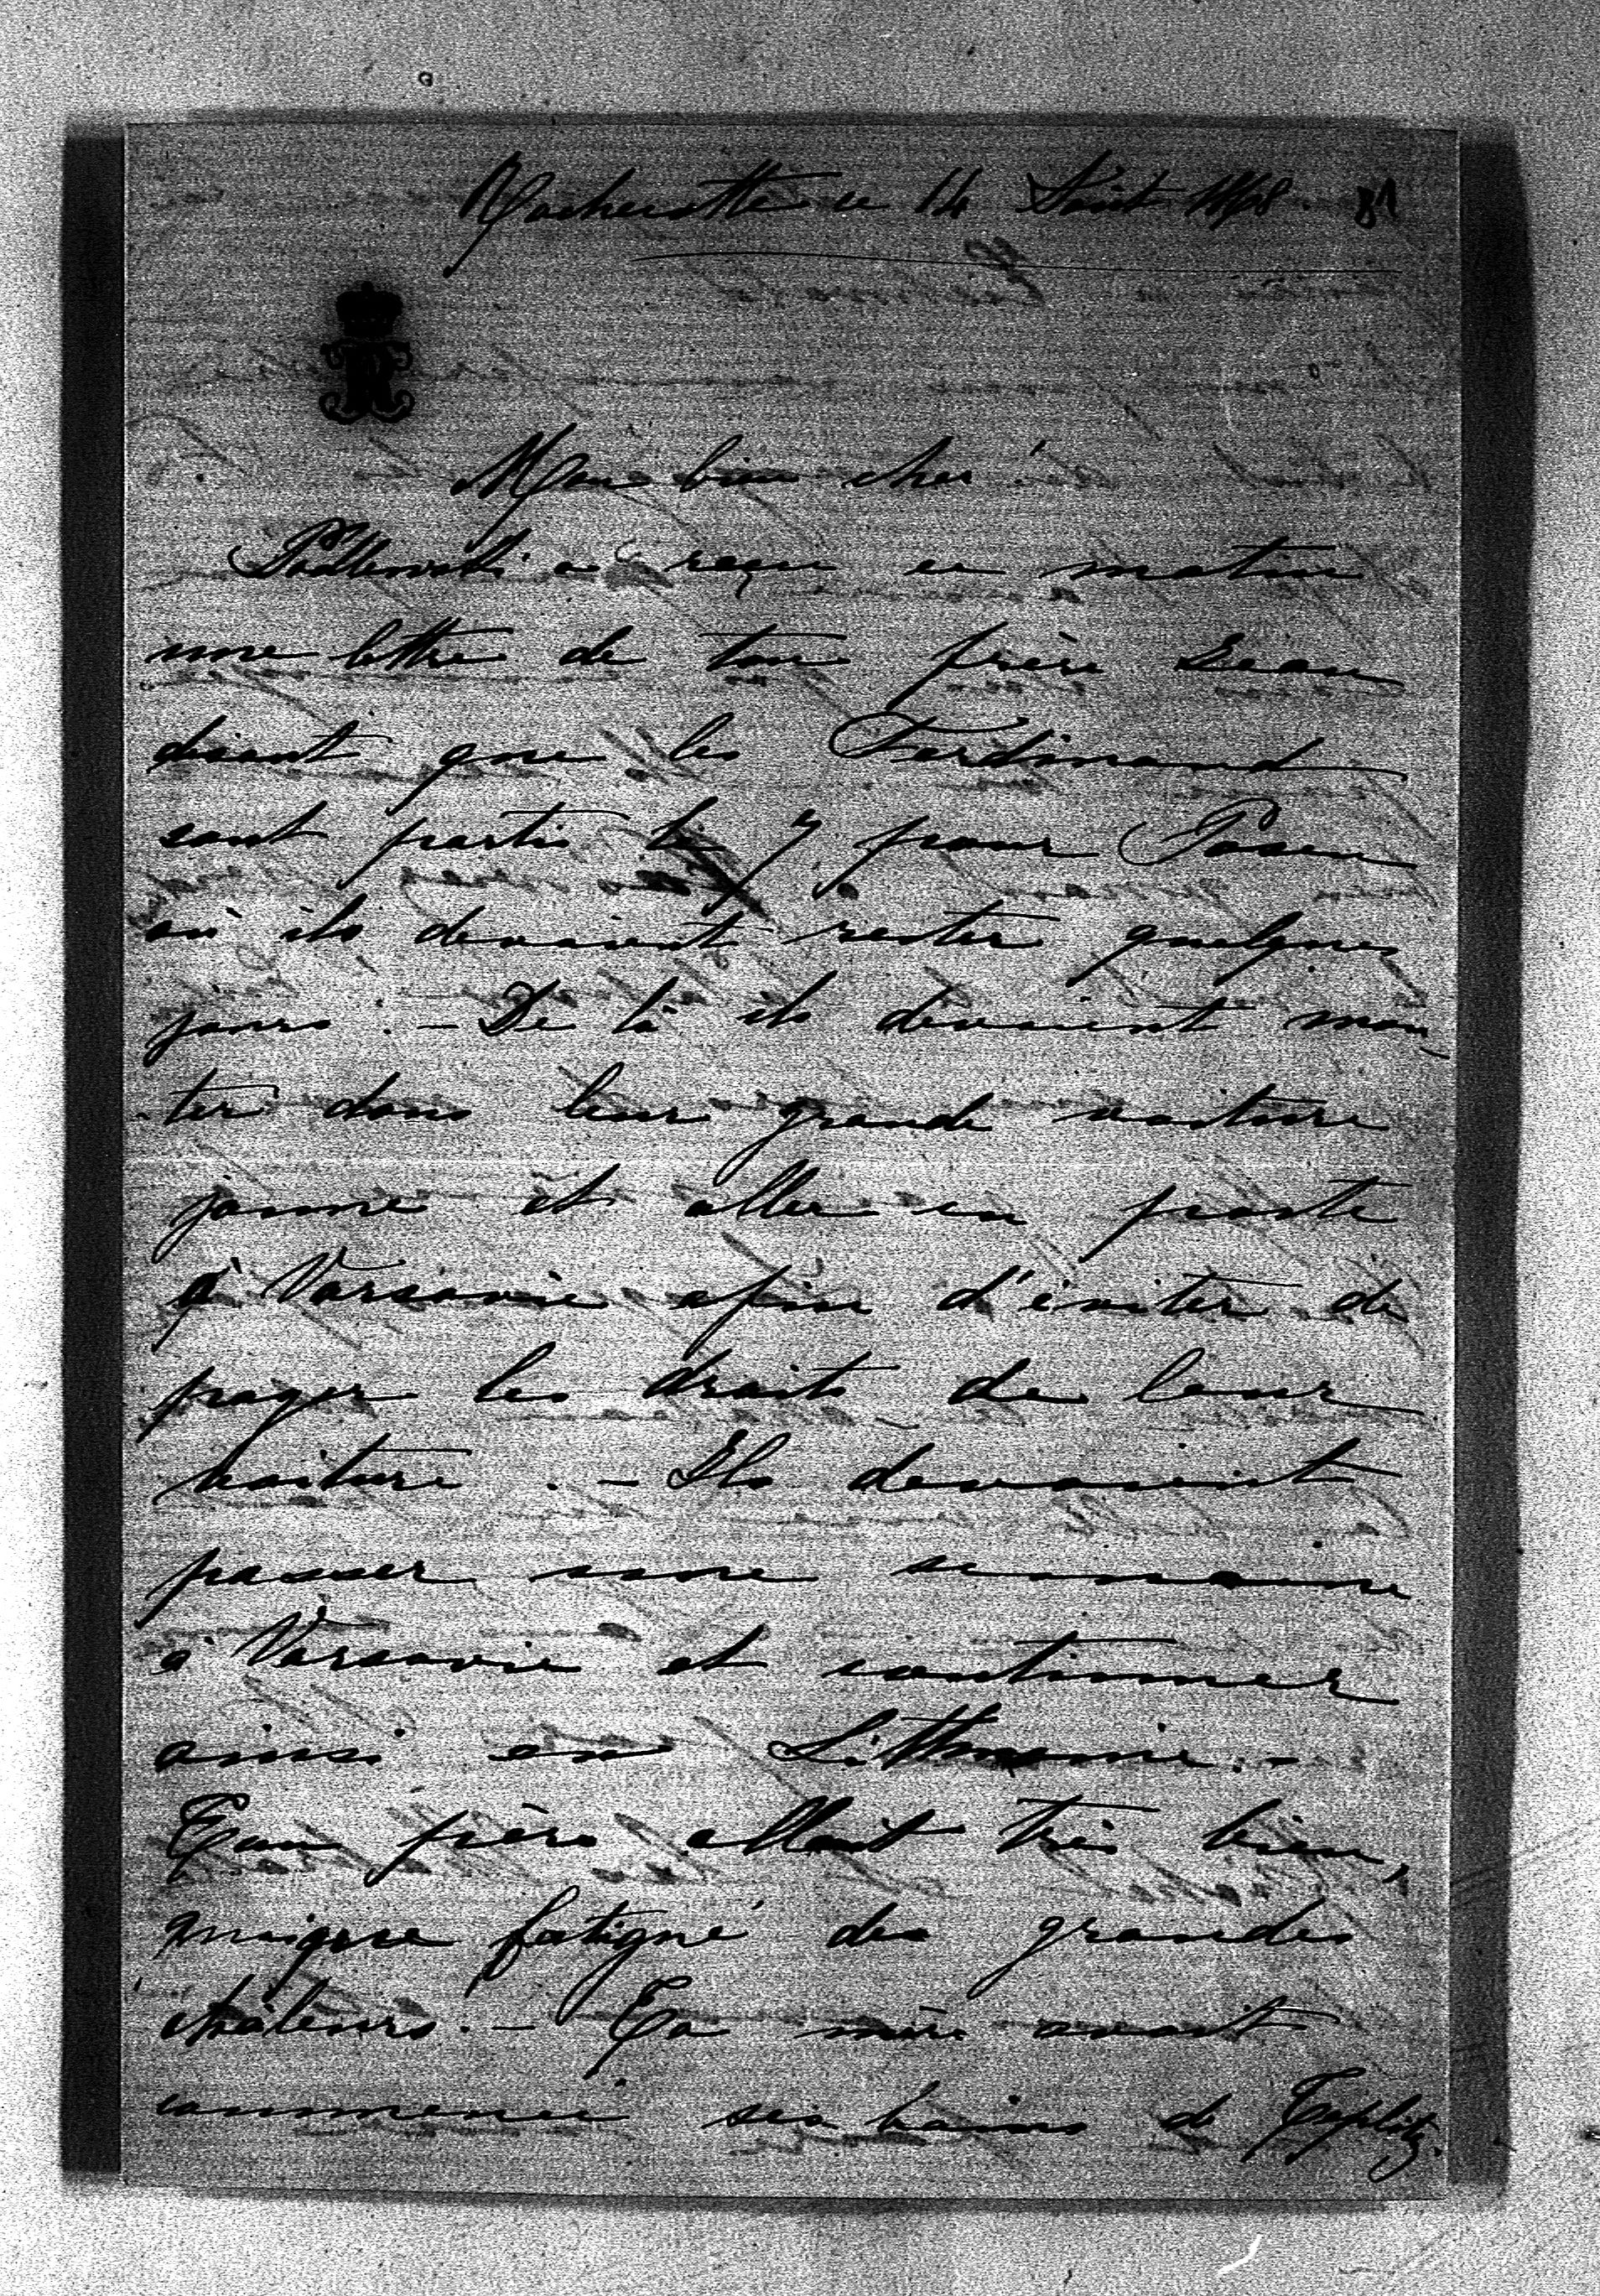 Rochecotte ce 14 Août 1868. 81
Mon bien cher!
a reçu ce matin
une lettre de ton frère Léon
disant que les Ferdinand
sont partis le 7 pour Posen
où ils devaient rester quelques
jours. - De là ils devaient mon-
-ter dans leur grande voiture
jaune et aller en poste
à Varsovie afin d'éviter de
payer les droits de leur
voiture. - Ils devaient
passer une semaine
à Varsovie et continuer
ainsi en Litthuanie. -
Ton père allait très bien,
quoique fatigué des grandes
chaleurs. - Ta mère avait
commencé ses bains de Teplitz.